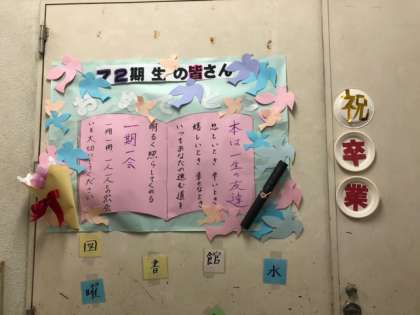 72期生の皆さん
本は一生の友達
悲しいとき 辛いとき
嬉しいとき 幸せなとき
いつもあなたの進む道を
明るく照らしてくれる
一期一会
一冊一冊、一人一人との出会
いを大切にしてください
祝
卒
業
図
書
館
水
曜